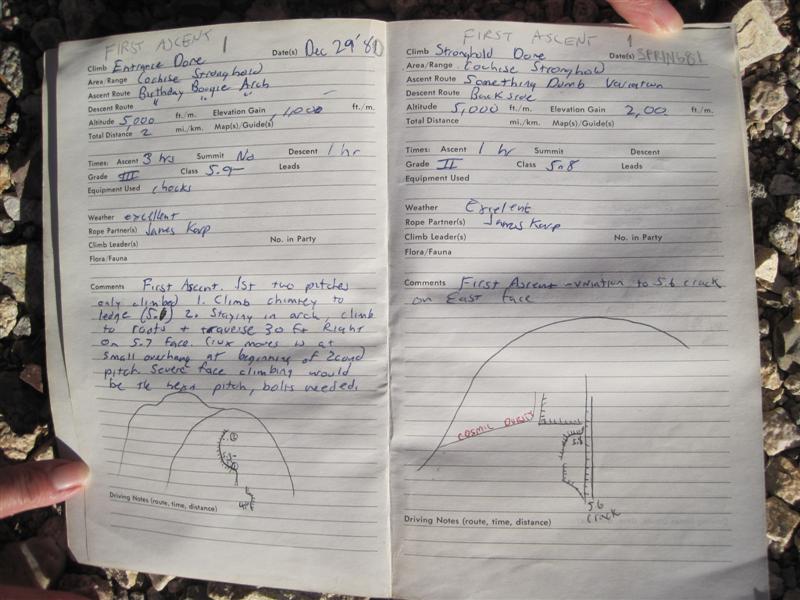 FIRST ASCENT 1
Climb Entrance Dome Date(s) Dec 29 '81
Area/Range Cochise Stronghold
Ascent Route Birthday Boogie Arch
Descent Route " " " —
Altitude 5,000 ft./m. Elevation Gain 1,000 ft./m.
Total Distance 2 mi./km. Map(s)/Guide(s)
Times: Ascent 3 hrs Summit No Descent 1 hr
Grade III Class 5.9- Leads
Equipment Used chocks
Weather excellent
Rope Partner(s) James Karp
Climb Leader(s) No. in Party
Flora/Fauna
Comments First Ascent. 1st two pitches
only climbed 1. Climb chimney to
ledge 2. Staying in arch, climb
to roots + traverse 30 ft Right
on 5.7 face. Crux moves is at
small overhang at beginning of 2cond
pitch. Severe face climbing would
be the next pitch, bolts needed.
2
5.9-
1
Driving Notes (route, time, distance)
FIRST ASCENT 1
Climb Stronghold Dome Date(s) SPRING 81
Area/Range Cochise Stronghold
Ascent Route Something Dumb Variation
Descent Route Back side
Altitude 5,000 ft./m. Elevation Gain 2,00 ft./m.
Total Distance mi./km. Map(s)/Guide(s)
Times: Ascent 1 hr Summit Descent
Grade II Class 5.8 Leads
Equipment Used
Weather Exelent
Rope Partner(s) James Karp
Climb Leader(s) No. in Party
Flora/Fauna
Comments First Ascent - variation to 5.6 crack
on East face
COSMIC
5.8
5.6
crack
Driving Notes (route, time, distance)